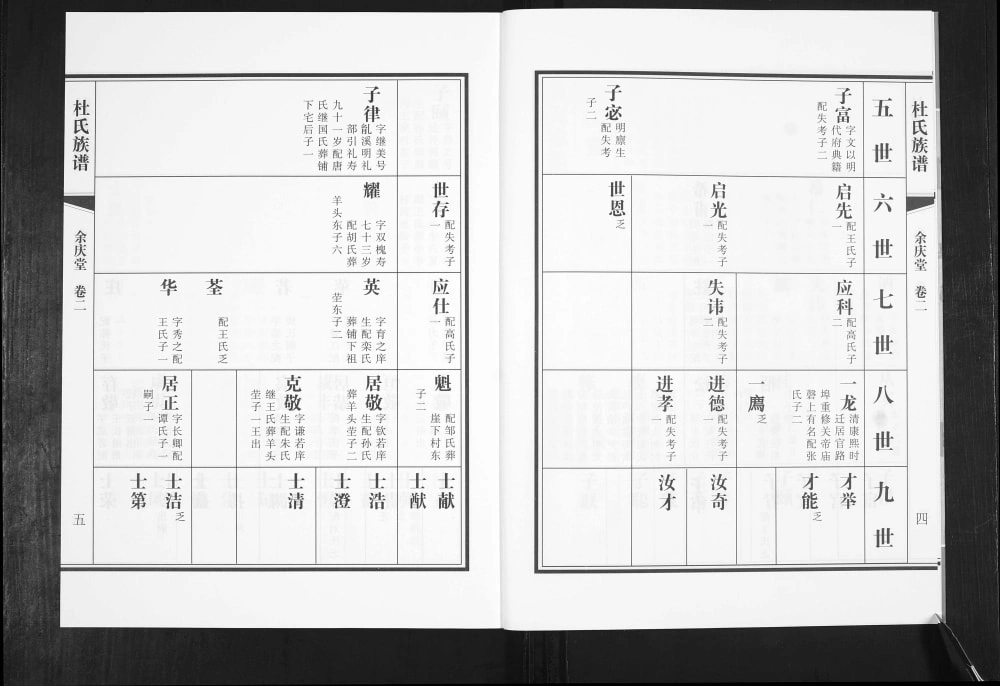 杜氏族谱
余庆堂 卷二
四
五世
六世
七世
八世
九世
子富
字文以明
代府典籍
配失考子二
子宓
明廪生
配失考
子二
启先
配王氏子
一
启光
配失考子
一
世恩
乏
应科
配高氏子
二
失讳
配失考子
二
一龙
清康熙时
迁居官路
埠重修关帝庙
磬上有名配张
氏子二
一鹰
乏
进德
配失考子
一
进孝
配失考子
一
才举
才能
乏
汝奇
汝才
世存
配失考子
一
应仕
配高氏子
一
魁
配邹氏葬
崖下村东
子二
士献
士猷
子律
字继美号
乿溪明礼
部引礼寿
九十一岁配唐
氏继国氏葬铺
下宅后子一
耀
字双槐寿
七十三岁
配胡氏葬
羊头东子六
英
字育之庠
生配栾氏
葬铺下祖
茔东子二
荃
配王氏乏
华
字秀之配
王氏子一
居敬
字钦若庠
生配孙氏
葬羊头茔子二
克敬
字谦若庠
生配朱氏
继王氏葬羊头
茔子一王出
居正
字长卿配
谭氏子一
嗣子一
士浩
士澄
士清
士洁
乏
士第
杜氏族谱
余庆堂 卷二
五